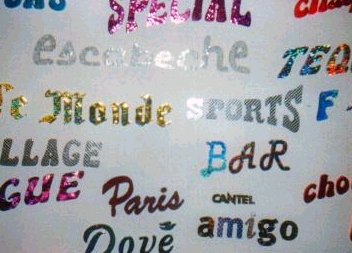 SPECIAL
escabeche
Le Monde SPORTS F
LLAGE BAR
GUE Paris CANTEL cho
Dové amigo